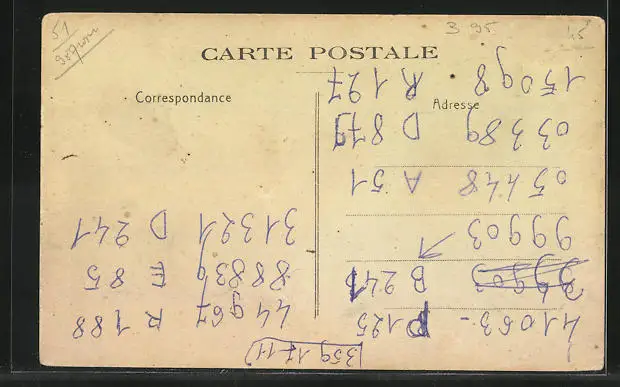 51
3 95
CARTE POSTALE
Correspondance
Adresse
15098 R 127
03389 D 879
05448 A 51
99903
B 241
41063 - D 125
31321 D 241
88839 E 85
44967 R 188
359 17-11